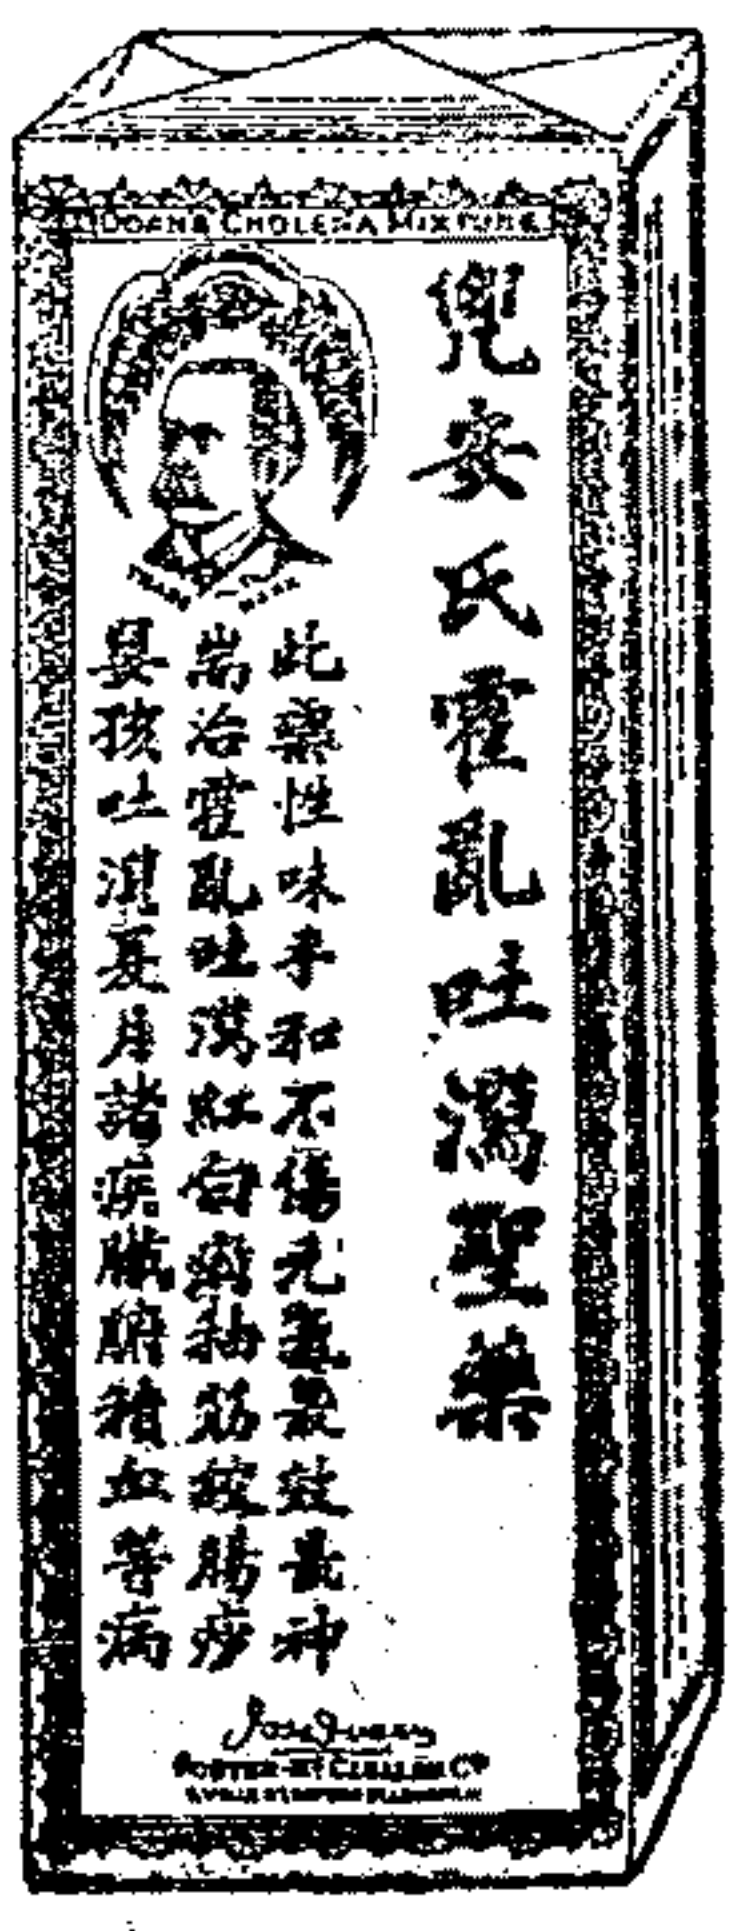 DOANS CHOLERA MIXTURE
兜安氏霍亂吐瀉聖藥
TRADE MARK
此藥性味平和不傷元氣最效最神
耑治霍亂吐瀉紅白痢抽筋絞腸痧
嬰孩吐瀉夏月諸疾臟腑積血等病
FOSTER-McCLELLAN Co